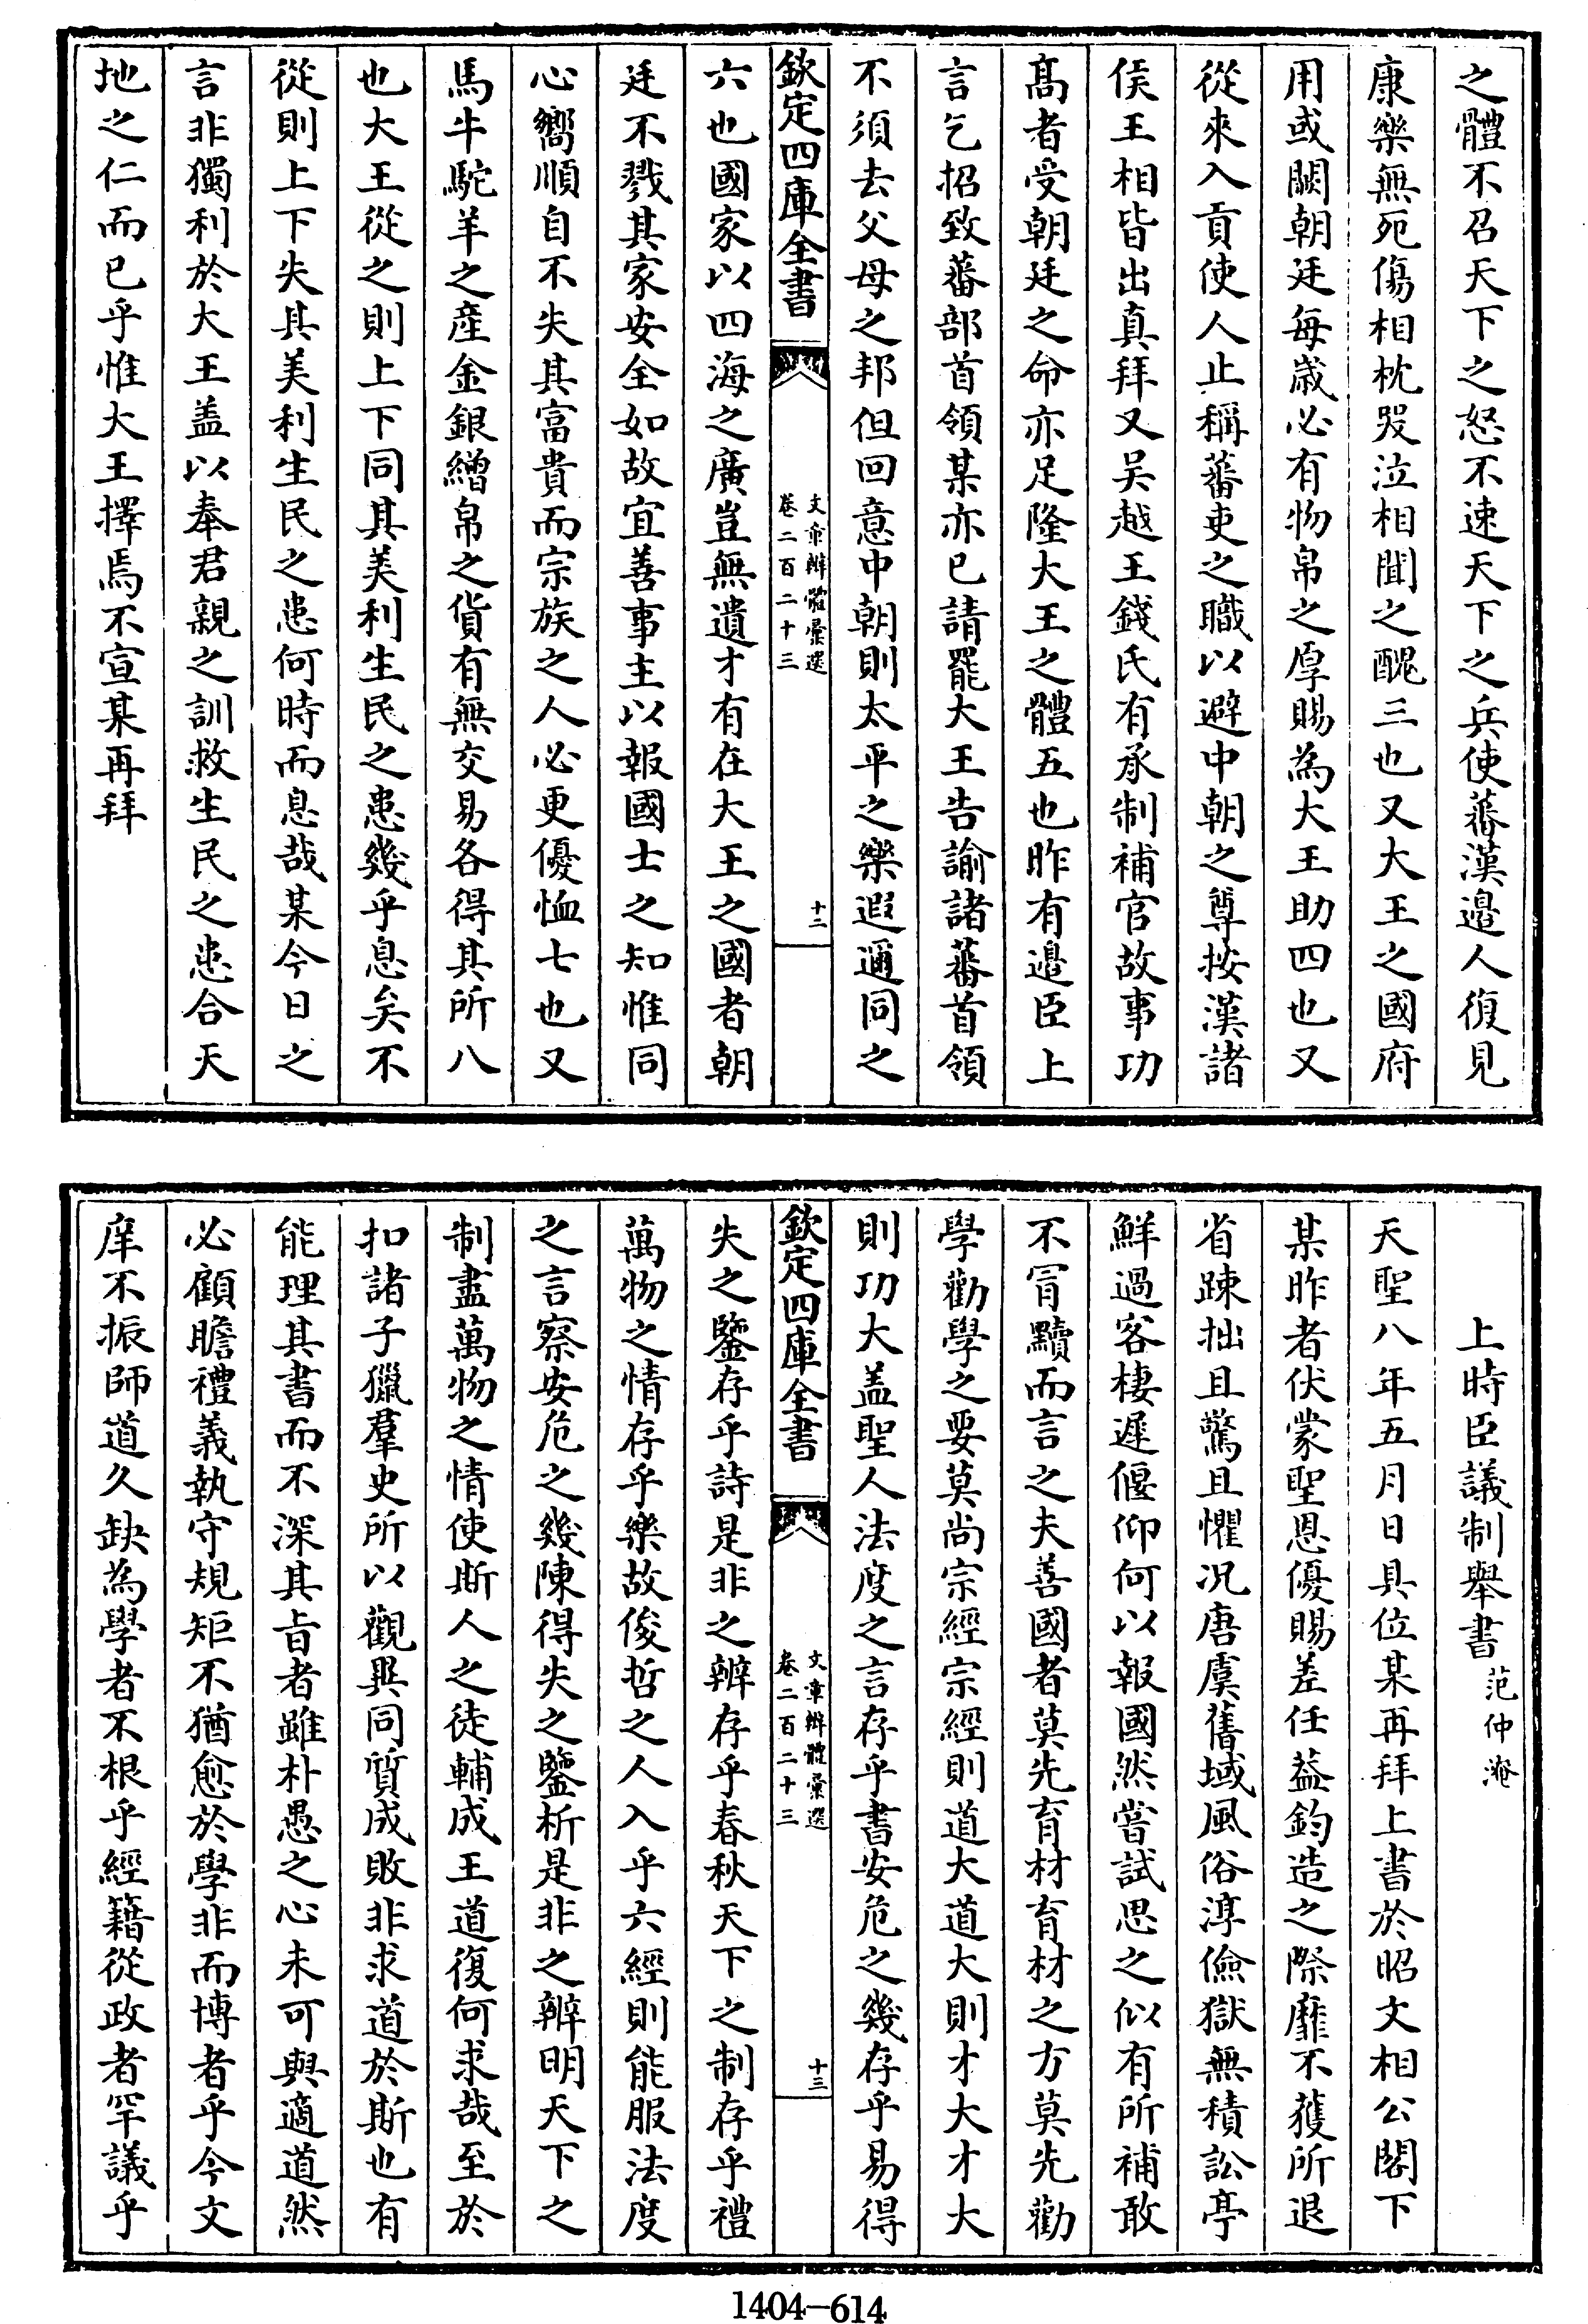 之體不召天下之怒不速天下之兵使蕃漢邉人復見
康樂無死傷相枕哭泣相聞之醜三也又大王之國府
用或闕朝廷每歳必有物帛之厚賜為大王助四也又
從來入貢使人止稱蕃吏之職以避中朝之尊按漢諸
侯王相皆出真拜又吴越王錢氏有承制補官故事功
髙者受朝廷之命亦足隆大王之體五也昨有邉臣上
言乞招致蕃部首領某亦已請罷大王告諭諸蕃首領
不須去父母之邦但回意中朝則太平之樂遐邇同之
欽定四庫全書
文章辨體彚選
卷二百二十三
十二
六也國家以四海之廣豈無遺才有在大王之國者朝
廷不戮其家安全如故宜善事主以報國士之知惟同
心嚮順自不失其富貴而宗族之人必更優恤七也又
馬牛駝羊之産金銀繒帛之貨有無交易各得其所八
也大王從之則上下同其美利生民之患幾乎息矣不
從則上下失其美利生民之患何時而息哉某今日之
言非獨利於大王盖以奉君親之訓救生民之患合天
地之仁而已乎惟大王擇焉不宣某再拜
上時臣議制舉書 范仲淹
天聖八年五月日具位某再拜上書於昭文相公閣下
某昨者伏蒙聖恩優賜差任葢鈞造之際靡不獲所退
省踈拙且驚且懼况唐虞舊域風俗淳儉獄無積訟亭
鮮過客棲遲偃仰何以報國然嘗試思之似有所補敢
不冐黷而言之夫善國者莫先育材育材之方莫先勸
學勸學之要莫尚宗經宗經則道大道大則才大才大
則功大盖聖人法度之言存乎書安危之幾存乎易得
欽定四庫全書
文章辨體彚選
卷二百二十三
十三
失之鑒存乎詩是非之辨存乎春秋天下之制存乎禮
萬物之情存乎樂故俊哲之人入乎六經則能服法度
之言察安危之幾陳得失之鑒析是非之辨明天下之
制盡萬物之情使斯人之徒輔成王道復何求哉至於
扣諸子獵羣史所以觀異同質成敗非求道於斯也有
能理其書而不深其旨者雖朴愚之心未可與適道然
必顧瞻禮義執守規矩不猶愈於學非而博者乎今文
庠不振師道久缺為學者不根乎經籍從政者罕議乎
1404-614